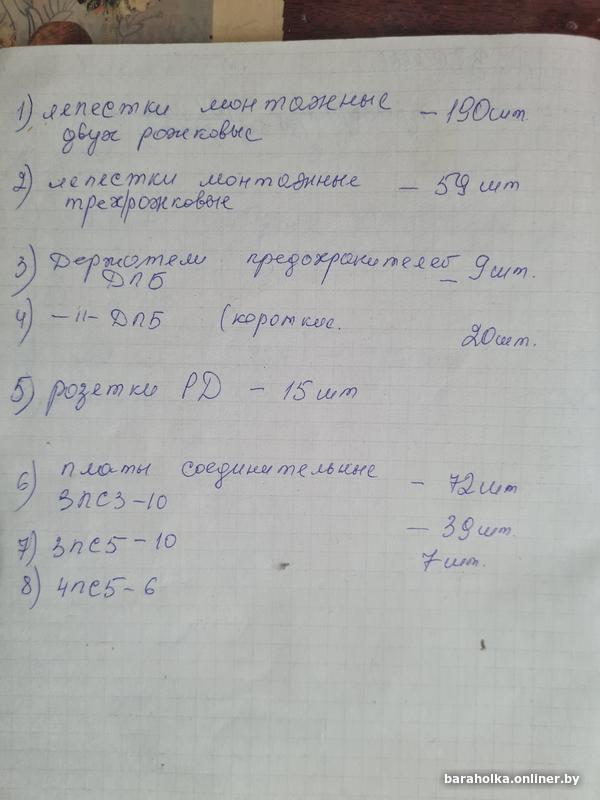 1) лепестки монтажные - 190шт.
двух рожковые
2) лепестки монтажные - 59 шт
трехрожковые
3) Держатели предохранителей - 9шт.
ДПБ
4) -"- ДПБ (короткие. 20шт.
5) розетки РД - 15 шт
6) платы соединительные - 72шт
3ПС3-10
7) 3ПС5-10 - 39шт.
8) 4ПС5-6 7шт.
baraholka.onliner.by